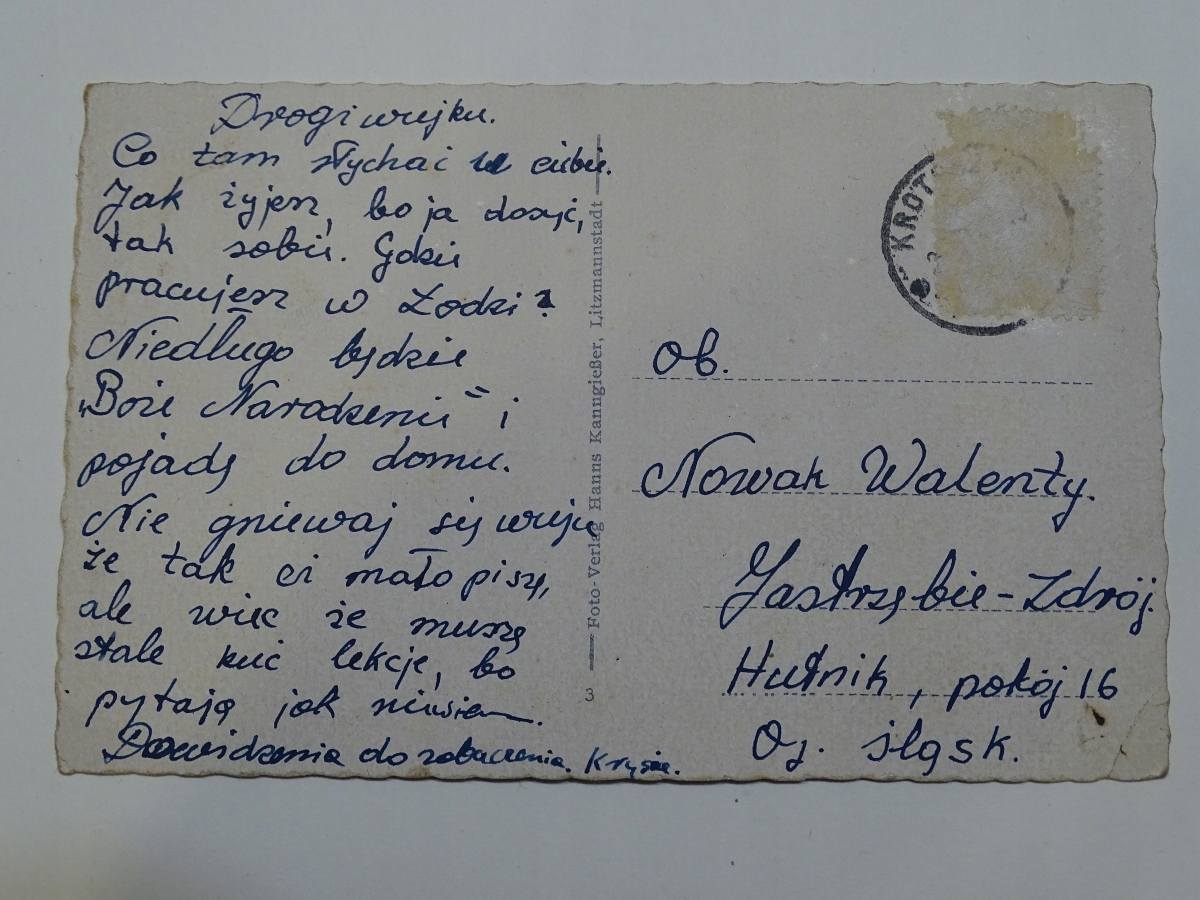 Drogi wujku.
Co tam słychać u ciebie.
Jak żyjesz, bo ja dosyć,
tak sobie. Gdzie
pracujesz w Łodzi?
Niedługo będzie
„Boże Narodzenie" i
pojadę do domu.
Nie gniewaj się wuju
że tak ci mało piszę,
ale wiec że muszę
stale kuć lekcje, bo
pytają jak
Dowidzenia do zobaczenia. Krysia.
Foto-Verlag Hanns Kanngießer, Litzmannstadt
3
KROT
Ob.
Nowak Walenty.
Jastrzębie-Zdrój.
Hutnik, pokój 16
Oj. śląsk.